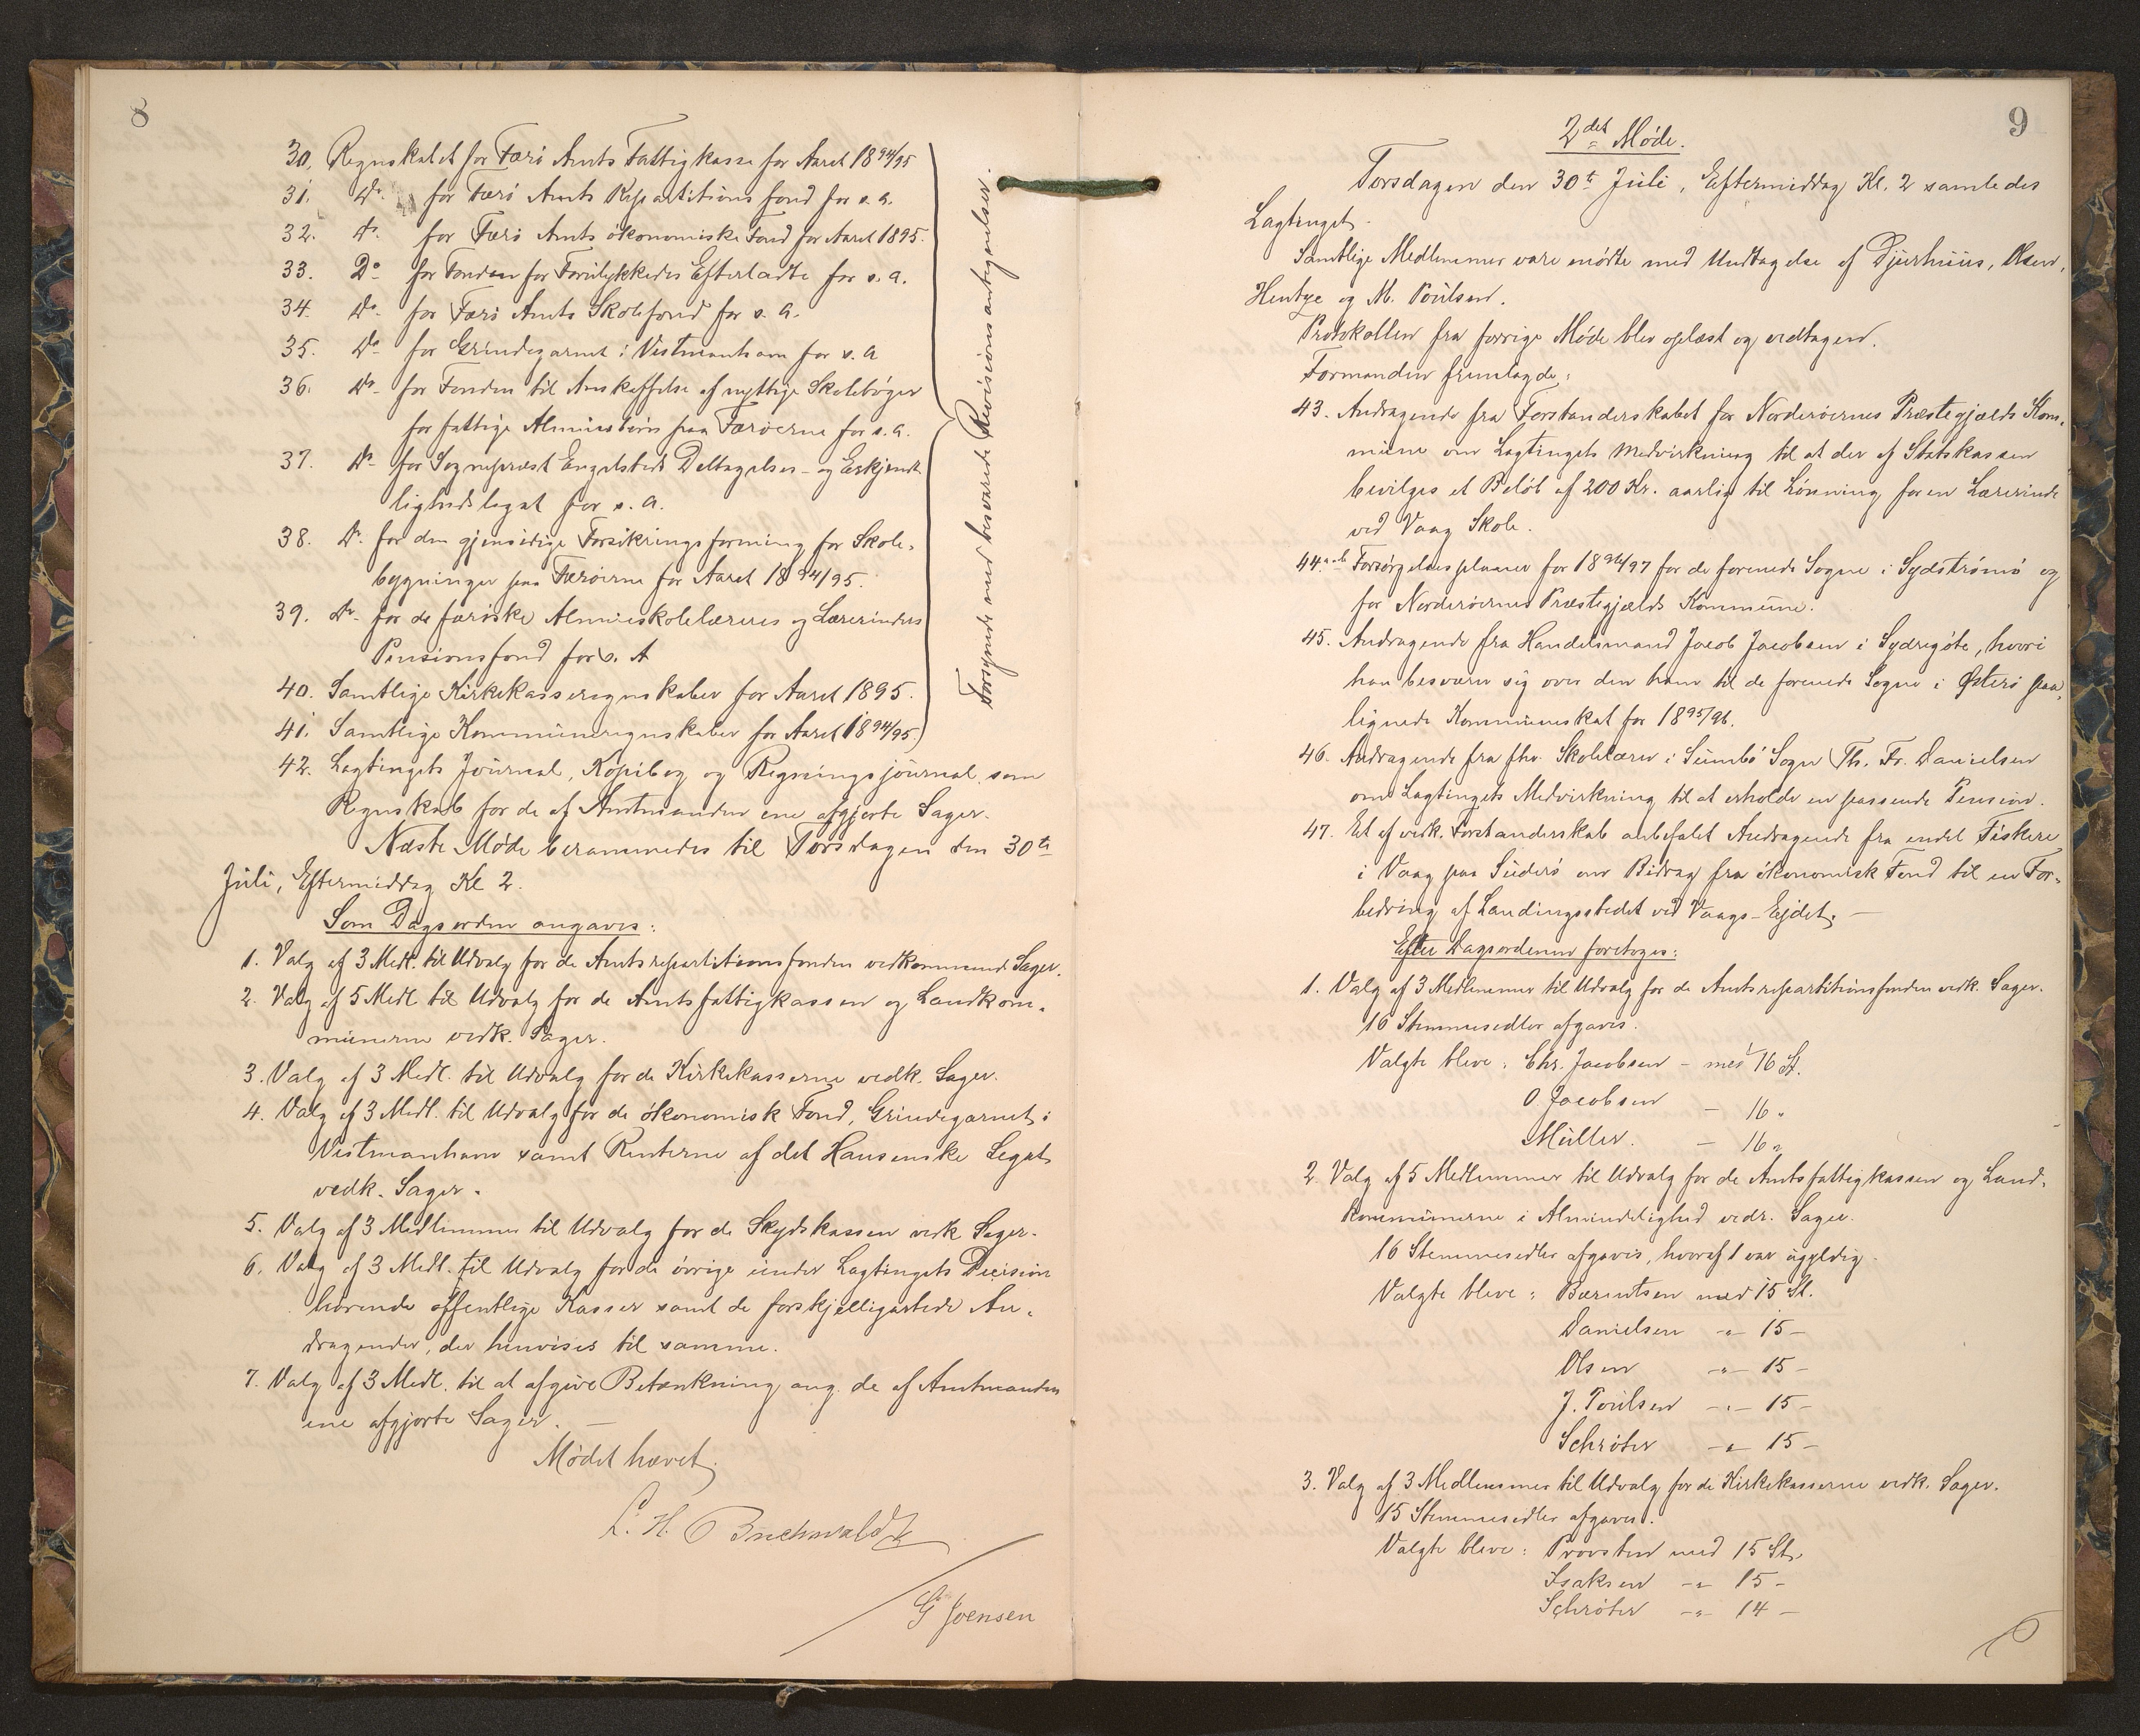 8
30. Regnskabet for Færø Amts Fattigkasse for Aaret 1894/95
31. Do. for Færø Amts Repartitions fond for s. a.
32. Do. for Færø Amts økonomiske Fond for Aaret 1895.
33. Do for Fonden for Forulykkedes Efterladte for s. a.
34. Do. for Færø Amts Skolefond for s. a.
35. Do for Grindegarnet i Vestmanhavn for s. a
36. Do. for Fonden til Anskaffelse af nyttige Skolebøger
for fattige Almuesbørn paa Færøerne for s. a.
37. Do. for Sognepræst Engelsteds Deltagelses- og Erkjendt-
lighedslegat for s. a.
38. Do. for den gjensidige Forsikringsforening for Skole-
bygninger paa Færøerne for Aaret 1894/95.
39. Do. for de færøske Almueskolelæreres og Lærerinders
Pensionsfond for s. A
40. Samtlige Kirkekasseregnskaber for Aaret 1895.
41. Samtlige Kommuneregnskaber for Aaret 1894/95.
Forsynede med besvarede Revisionsantegnelser.
42. Lagtingets Journal, Kopibog og Regningsjournal som
Regnskab for de af Amtmanden ene afgjorte Sager.
Næste Møde berammedes til Torsdagen den 30te
Juli, Eftermiddag Kl 2.
Som Dagsorden angaves:
1. Valg af 3 Medl. til Udvalg for de Amtsrepartitionsfonden vedkommende Sager.
2. Valg af 5 Medl til Udvalg for de Amtsfattigkassen og Landkom-
munerne vedk. Sager.
3. Valg af 3 Medl. til Udvalg for de Kirkekasserne vedk. Sager.
4. Valg af 3 Medl. til Udvalg for de økonomisk Fond, Grindegarnet i
Vestmanhavn samt Renterne af det Hansenske Legat
vedk. Sager.
5. Valg af 3 Medlemmer til Udvalg for de Skydskassen vedk Sager.
6. Valg af 3 Medl. til Udvalg for de øvrige under Lagtingets Decision
hørende offentlige Kasser samt de forskjelligartede An-
dragender, der henvises til samme.
7. Valg af 3 Medl. til at afgive Betænkning ang. de af Amtmanden
ene afgjorte Sager. —
Mødet hævet.
C. H. Buchwaldt
/ G Joensen
9
2det Møde.
Torsdagen den 30te Juli, Eftermiddag Kl. 2 samledes
Lagtinget.
Samtlige Medlemmer vare mødte med Undtagelse af Djurhuus, Olsen,
Hentze og M. Poulsen.
Protokollen fra forrige Møde blev oplæst og vedtagen.
Formanden fremlagde:
43. Andragende fra Forstanderskabet for Norderøernes Præstegjælds Kom-
mune om Lagtingets Medvirkning til at der af Statskassen
bevilges et Beløb af 200 Kr. aarlig til Lønning for en Lærerinde
ved Vaag Skole.
44. a-b Forsørgelsesplaner for 1896/97 for de forenede Sogne i Sydstrømø og
for Norderøernes Præstegjælds Kommune.
45. Andragende fra Handelsmand Jacob Jacobsen i Sydregøte, hvori
han besværer sig over den ham til de forenede Sogne i Østerø paa-
lignede Kommuneskat for 1895/96.
46. Andragende fra fhv. Skolelærer i Sumbø Sogn Th. Fr. Danielsen
om Lagtingets Medvirkning til at erholde en passende Pension.
47. Et af vedk. Forstanderskab anbefalet Andragende fra endel Fiskere
i Vaag paa Suderø om Bidrag fra økonomisk Fond til en For-
bedring af Landingsstedet ved Vaags-Ejdet. —
Efter Dagsordenen foretoges:
1. Valg af 3 Medlemmer til Udvalg for de Amtsrepartitionsfonden vedk. Sager.
16 Stemmesedler afgaves.
Valgte bleve: Chr. Jacobsen – med 16 St.
O. Jacobsen – 16 "
Müller. – 16 "
2. Valg af 5 Medlemmer til Udvalg for de Amtsfattigkassen og Land-
kommunerne i Almindelighed vedr. Sager.
16 Stemmesedler afgaves, hvoraf 1 var ugyldig.
Valgte bleve: Bærentsen med 15 St.
Danielsen -"- 15 –
Olsen -"- 15 –
J. Poulsen -"- 15 –
Schrøter -"- 15 –
3. Valg af 3 Medlemmer til Udvalg for de Kirkekasserne vedk. Sager.
15 Stemmesedler afgaves.
Valgte bleve: Provsten med 15 St.
Isaksen -"- 15 –
Schrøter -"- 14 –